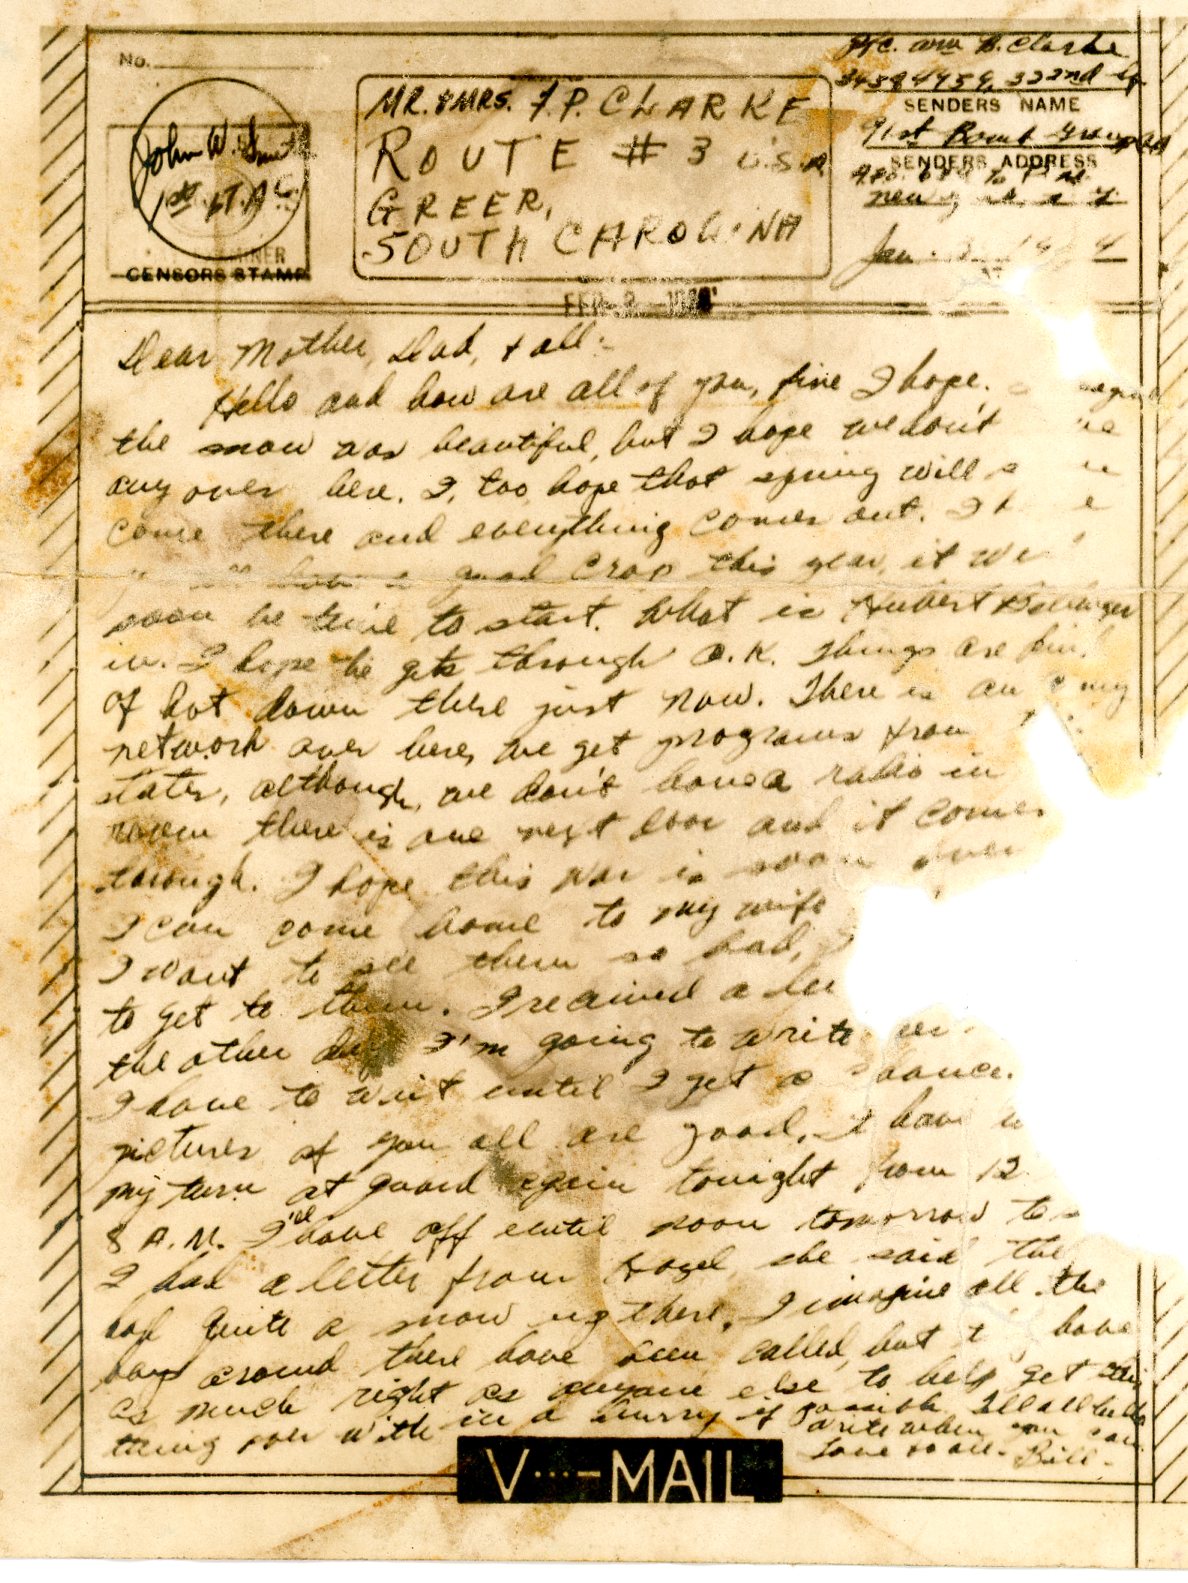 No.
Pfc. Wm B. Clarke
34594459, 322nd
SENDERS NAME
91st Bomb Group
SENDERS ADDRESS
New York, N.Y.
Jan. 1944
John W. Smith
1st LT. A.C.
CENSORS STAMP
MR. & MRS. F. P. CLARKE
ROUTE # 3 U.S.A.
GREER,
SOUTH CAROLINA
FEB 2
Dear Mother, Dad, & all:
Hello and how are all of you, fine I hope.
the snow was beautiful, but I hope we don't
any over here. I, too, hope that spring will
come there and everything comes out. I
good crop this year, it
soon be time to start. What is Hubert
in. I hope he gets through O.K. Things are kind
of hot down there just now. There is an
network over here, we get programs from
states, although, we don't have a radio in
room there is one next door and it comes
through. I hope this war is soon over
I can come home to my wife
I want to see them so bad,
to get to them. I received a
the other day I'm going to write
I have to wait until I get a chance.
pictures of you all are good. I have
my turn at guard again tonight from 12
8 A.M. I'll have off until noon tomorrow
I had a letter from Hazel, she said
had quite a snow up there. I imagine all the
boys around there have been called, but have
as much right as anyone else to help get this
thing over with in a hurry if possible.
write when you can.
Love to all. Bill.
V...-MAIL